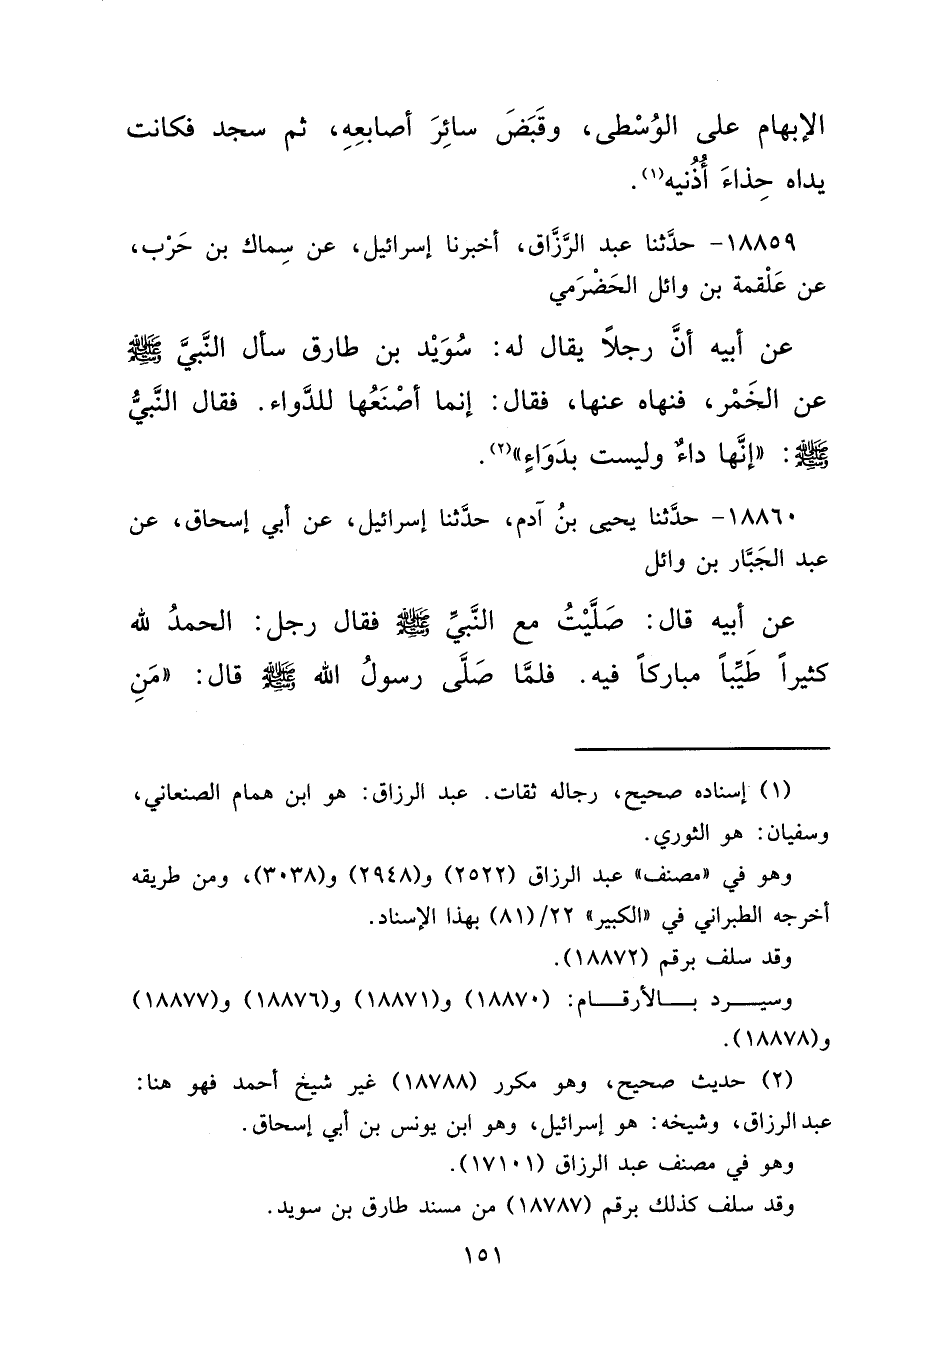 الإبهام على الوُسْطى، وقَبَضَ سائِرَ أصابعِهِ، ثم سجد فكانت
يداه حِذاءَ أُذُنيه(١).
١٨٨٥٩- حدَّثنا عبد الرَّزَّاق، أخبرنا إسرائيل، عن سِماك بن حَرْب،
عن عَلْقمة بن وائل الحَضْرَمي
عن أبيه أنَّ رجلاً يقال له: سُوَيْد بن طارق سأل النَّبيَّ ﷺ
عن الخَمْر، فنهاه عنها، فقال: إنما أصْنَعُها للدَّواء. فقال النَّبيُّ
ﷺ: «إنَّها داءٌ وليست بدَوَاءٍ»(٢).
١٨٨٦٠- حدَّثنا يحيى بنُ آدم، حدَّثنا إسرائيل، عن أبي إسحاق، عن
عبد الجَبَّار بن وائل
عن أبيه قال: صَلَّيْتُ مع النَّبيِّ ﷺ فقال رجل: الحمدُ لله
كثيراً طَيِّباً مباركاً فيه. فلمَّا صَلَّى رسولُ الله ﷺ قال: «مَنِ
(١) إسناده صحيح، رجاله ثقات. عبد الرزاق: هو ابن همام الصنعاني،
وسفيان: هو الثوري.
وهو في «مصنف» عبد الرزاق (٢٥٢٢) و(٢٩٤٨) و(٣٠٣٨)، ومن طريقه
أخرجه الطبراني في «الكبير» ٢٢/(٨١) بهذا الإسناد.
وقد سلف برقم (١٨٨٧٢).
وسيـــرد بـــالأرقـــام: (١٨٨٧٠) و(١٨٨٧١) و(١٨٨٧٦) و(١٨٨٧٧)
و(١٨٨٧٨).
(٢) حديث صحيح، وهو مكرر (١٨٧٨٨) غير شيخ أحمد فهو هنا:
عبد الرزاق، وشيخه: هو إسرائيل، وهو ابن يونس بن أبي إسحاق.
وهو في مصنف عبد الرزاق (١٧١٠١).
وقد سلف كذلك برقم (١٨٧٨٧) من مسند طارق بن سويد.
١٥١